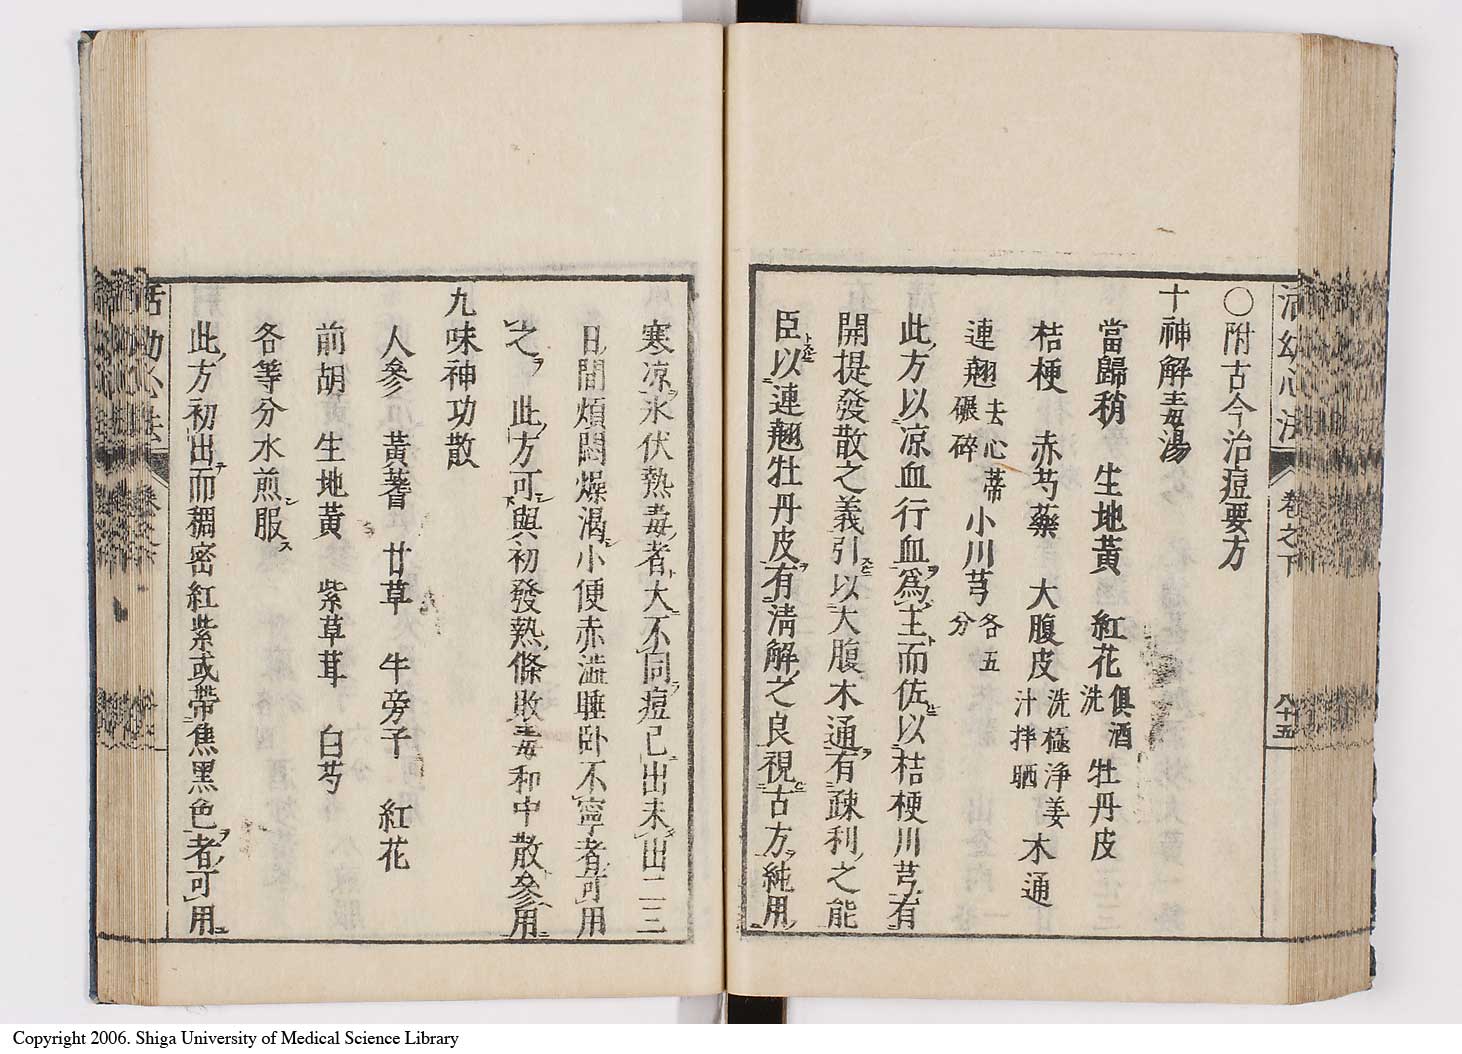 活幼心法
卷之下
八十五
○附古今治痘要方
十神解毒湯
當歸稍 生地黃 紅花俱酒洗 牡丹皮
桔梗 赤芍藥 大腹皮洗極淨姜汁拌晒 木通
連翹去心蒂碾碎 小川芎各五分
此方以凉血行血爲主而佐以桔梗川芎有
開提發散之義引以大腹木通有疎利之能
臣以連翹牡丹皮有淸解之良視古方純用
寒凉氷伏熱毒者大不同痘已出未出二三
日間煩悶燥渴小便赤澁睡臥不寧者可用
之 此方可與初發熱條敗毒和中散參用
九味神功散
人參 黃蓍 甘草 牛旁子 紅花
前胡 生地黃 紫草茸 白芍
各等分水煎服
此方初出而稠密紅紫或帶焦黑色者可用
Copyright 2006. Shiga University of Medical Science Library